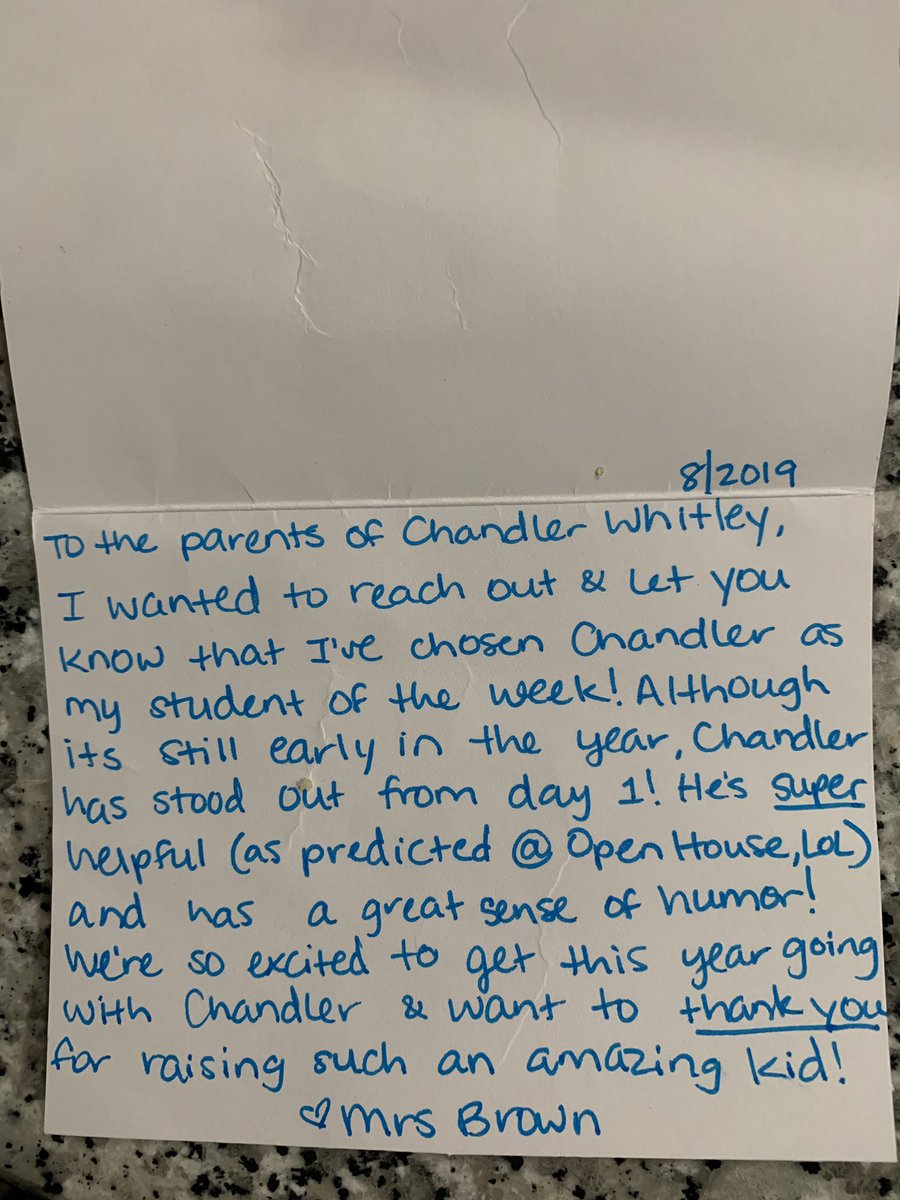 8/2019
To the parents of Chandler Whitley,
I wanted to reach out & let you
know that I've chosen Chandler as
my student of the week! Although
its still early in the year, Chandler
has stood out from day 1! He's super
helpful (as predicted @ Open House, LOL)
and has a great sense of humor!
We're so excited to get this year going
with Chandler & want to thank you
for raising such an amazing kid!
♡ Mrs Brown